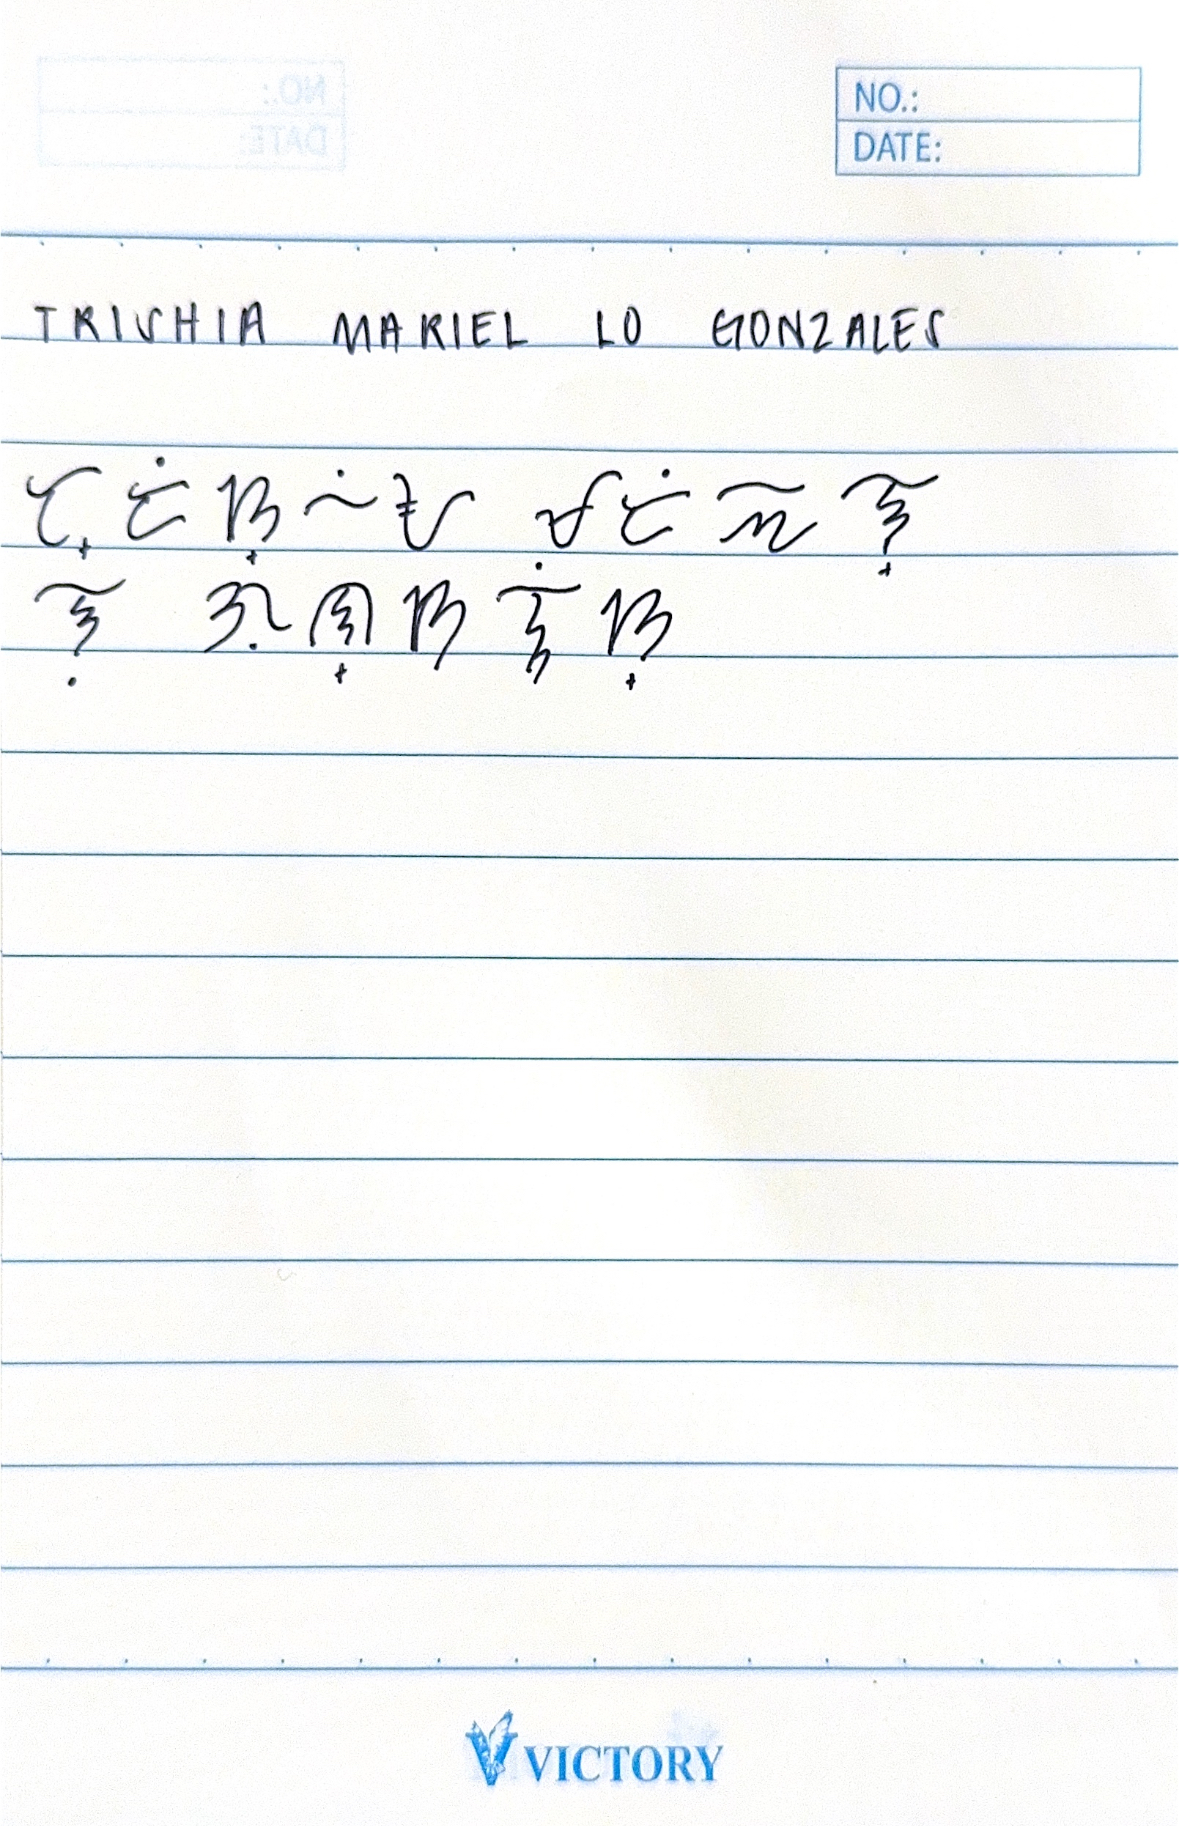 NO.:
DATE:
TRISHIA MARIEL LO GONZALES
ᜆ᜔ᜇᜒᜐ᜔ᜑᜒᜀ ᜋᜇᜒᜁᜎ᜔
ᜎᜓ ᜄᜓᜈ᜔ᜐᜎᜒᜐ᜔
VICTORY